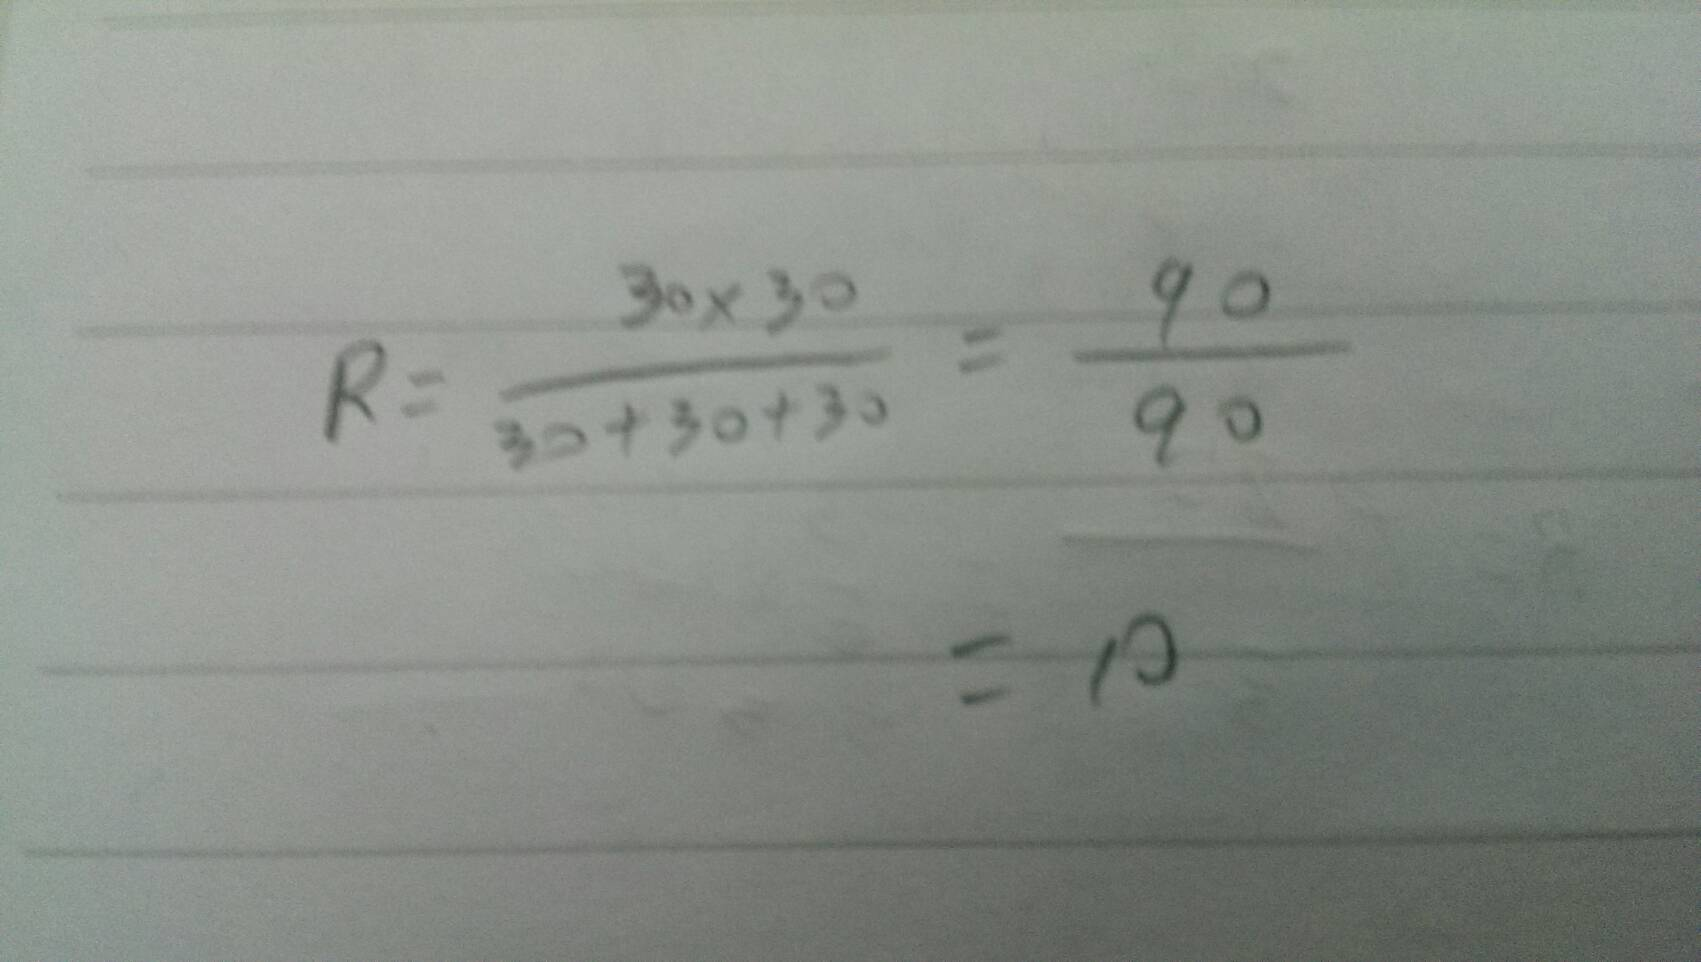 R = 30x30 / 30+30+30 = 90 / 90
= 10